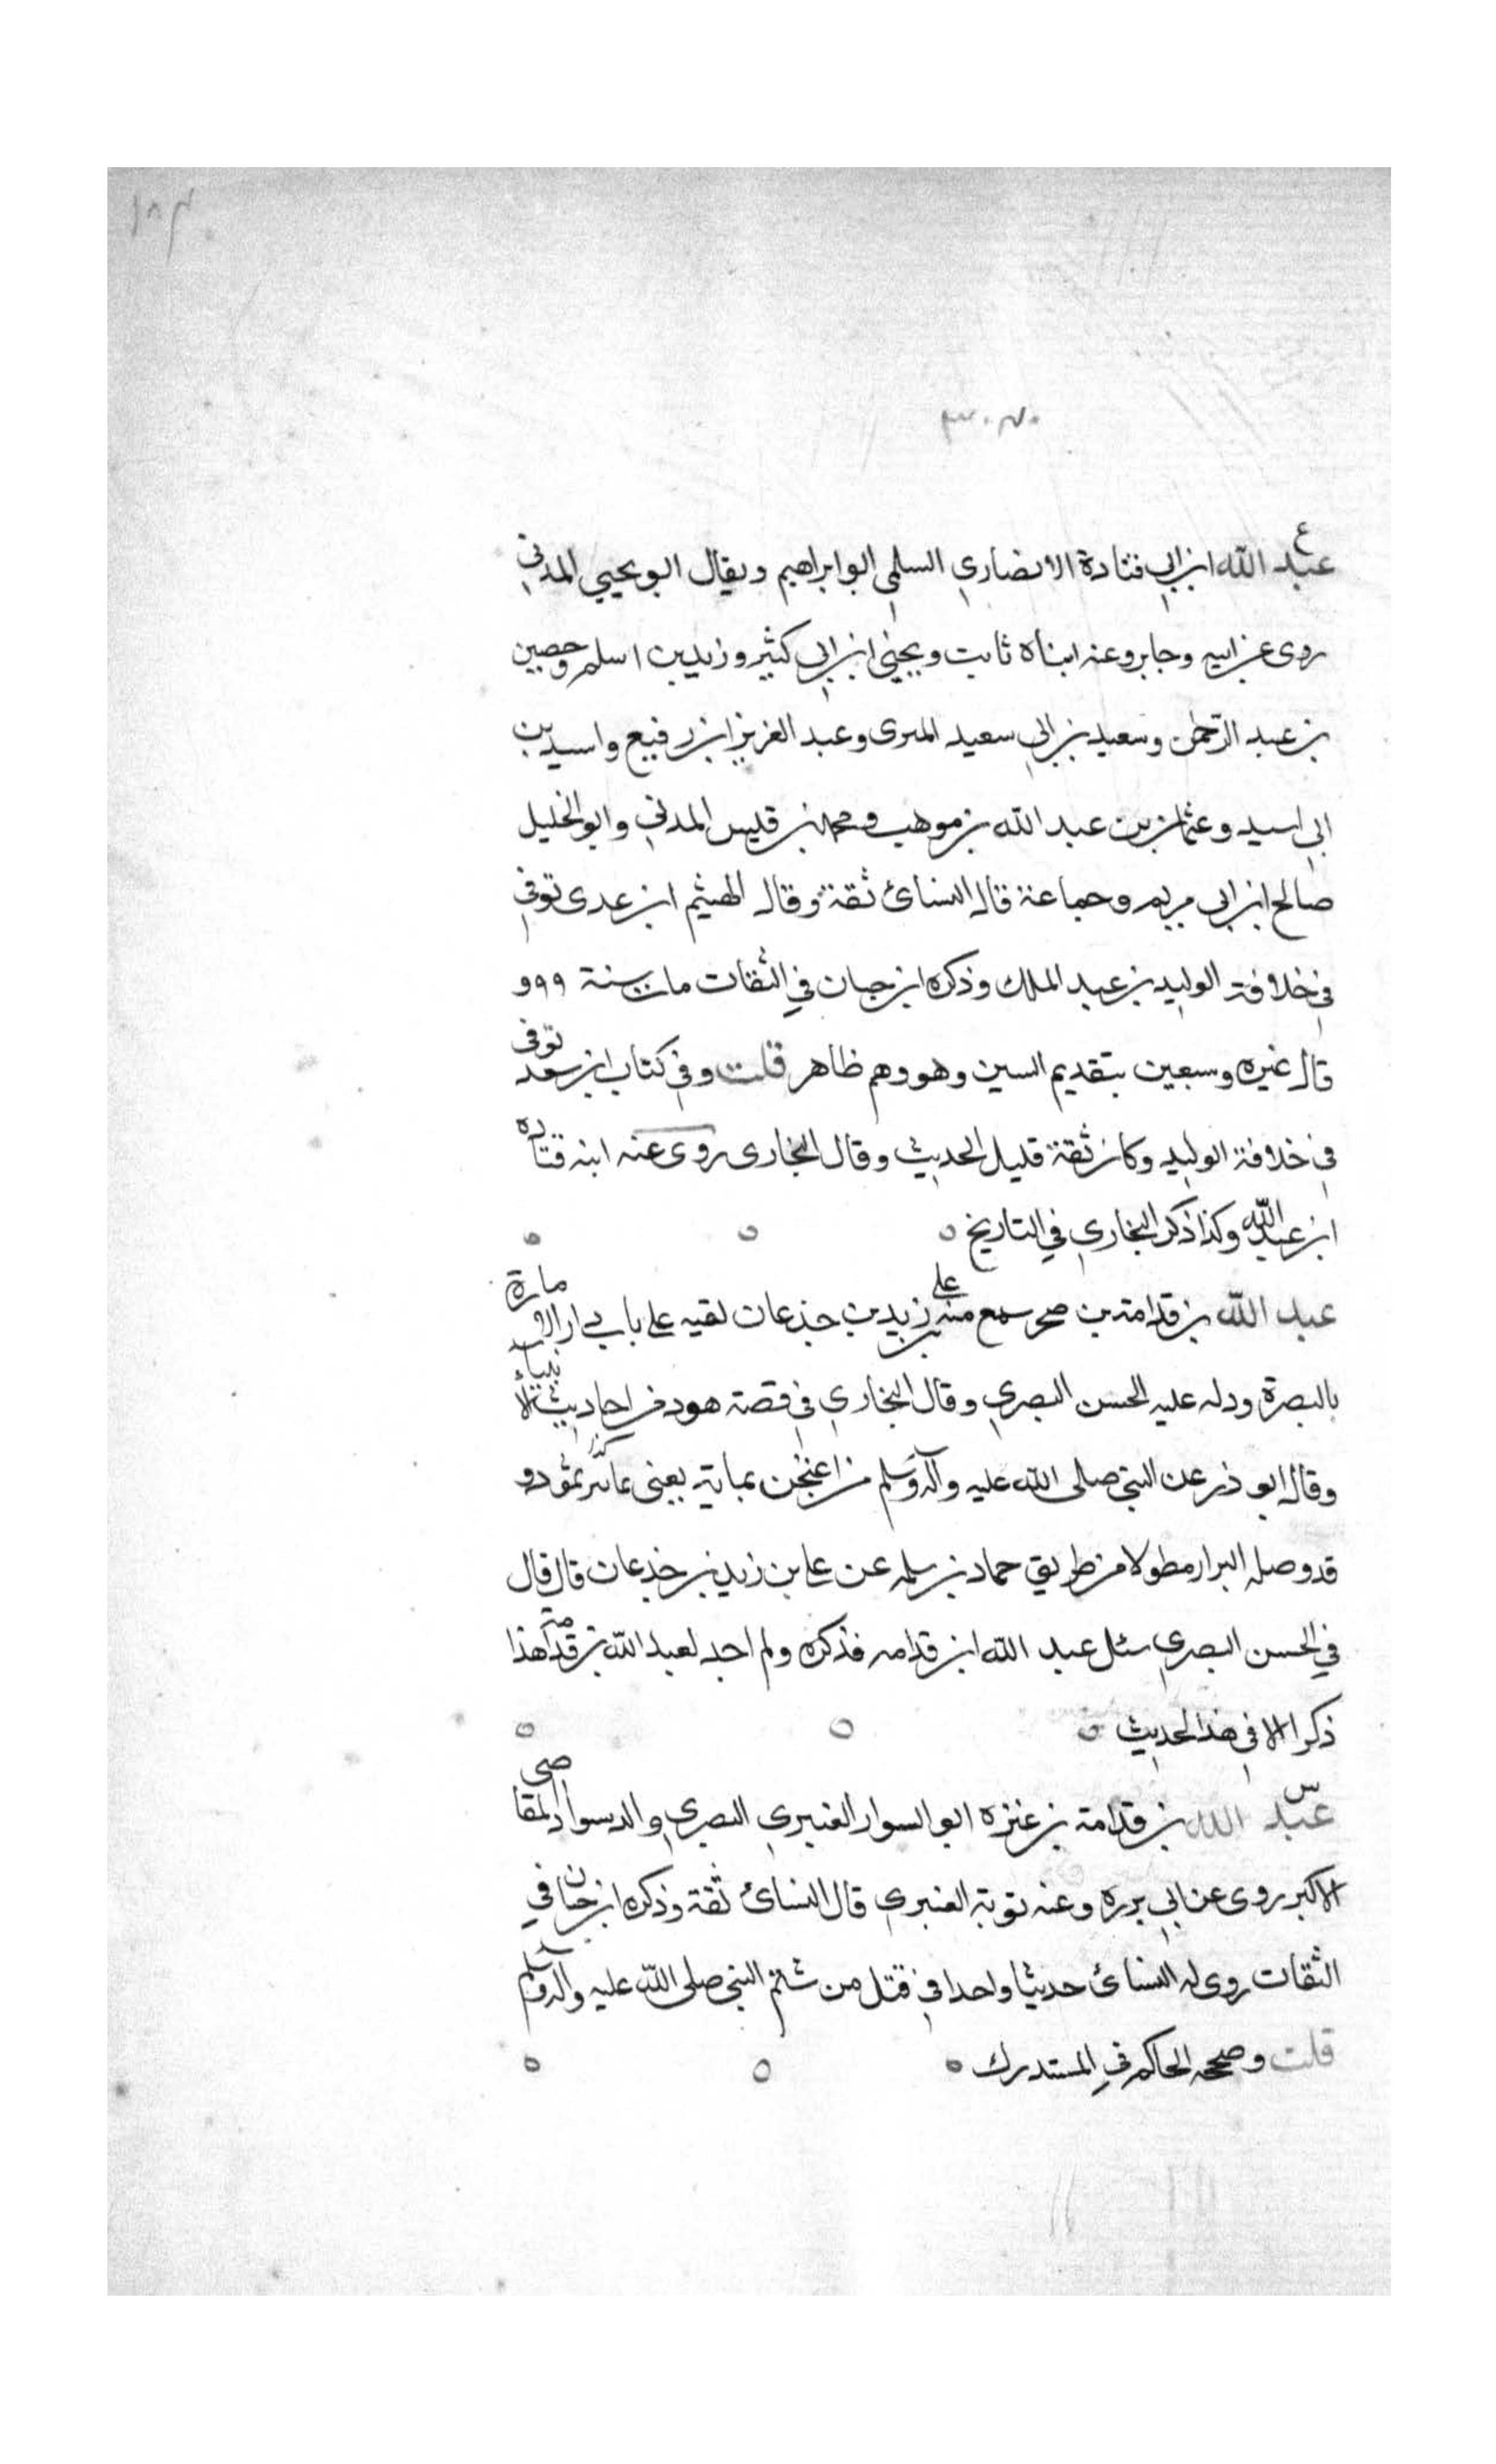 ١٨٤
٣٠٤٠
ع
عبد الله ابن ابي قتادة الانصاري السلمي ابو ابراهيم ويقال ابو يحيي المدني
روى عن ابيه وجابر وعنه ابناه ثابت ويحيى ابن ابي كثير وزيد بن اسلم وحصين
بن عبد الرحمن وسعيد بن ابي سعيد المبرى وعبد العزيز ابن رفيع واسيد بن
ابي اسيد وعثمان بن عبد الله بن موهب ومحمد بن قيس المدني وابو الخليل
صالح ابن ابي مريم وجماعة قال النسائ ثقة وقال الهيثم ابن عدى توفي
في خلافة الوليد بن عبد الملك وذكره ابن حبان في الثقات مات سنة ٩٩ و
قال غيره وسبعين بتقديم السين وهو وهم ظاهر قلت وفي كتاب ابن سعد توفي
في خلافة الوليد وكان ثقة قليل الحديث وقال البخارى روى عنه ابنه قتادة
ابن عبد الله وكذا ذكر البخاري في التاريخ
عبد الله بن قدامة بن صحر سمع منه علي بن زيد بن جذعان لقيه على باب دار الامارة
بالبصرة ودله عليه الحسن البصري وقال البخاري في قصة هود من احاديث الانبياء
وقال ابو ذر عن النبي صلى الله عليه وآله وسلم من يعنى ثمود و
قد وصله البزار مطولا من طريق حماد بن سلمه عن علي بن زيد بن جذعان قال قال
في الحسن البصري سئل عبد الله ابن قدامه فذكره ولم اجد لعبد الله بن قدامة هذا
ذكرا الا في هذا الحديث
س
عبد الله بن قدامة بن عنزه ابو السوار العنبري البصري والد سوار القاضي
الاكبر روى عن ابي برزه وعنه توبة العنبري قال النسائ ثقة وذكره ابن حبان في
الثقات روى له النسائ حديثا واحدا في قتل من شتم النبي صلى الله عليه وآله وسلم
قلت وصححه الحاكم في المستدرك